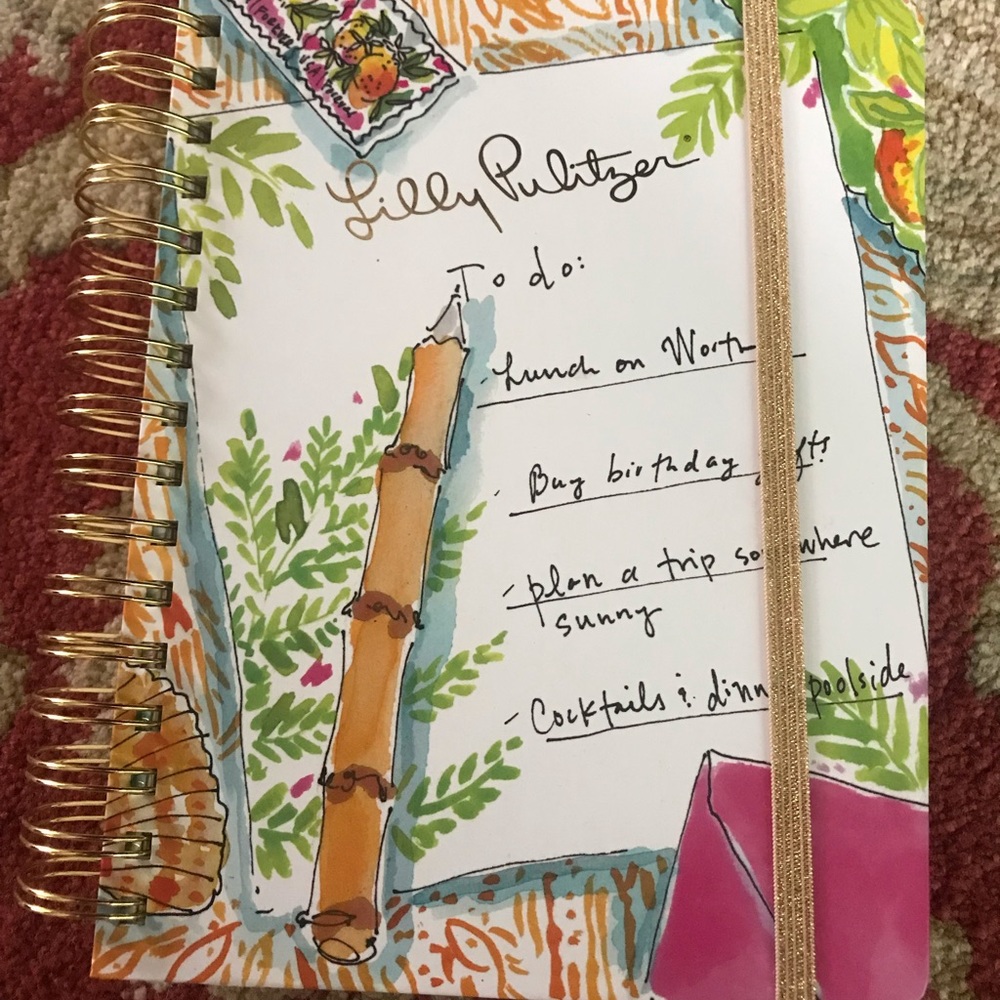 Lilly Pulitzer®
To do:
- Lunch on Worth
- Buy birthday
- plan a trip somewhere
sunny
- Cocktails & dinner poolside